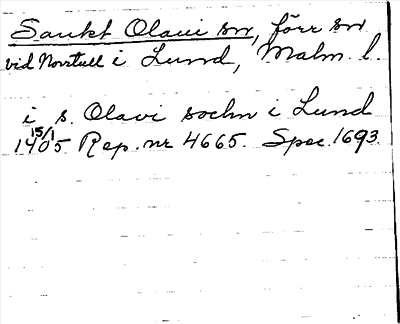 Sankt Olavi sn, förr sn
vid Norrtull i Lund, Malm. l.
i s. Olavi sochn i Lund
15/1 1405 Rep. nr 4665. Spec. 1693.